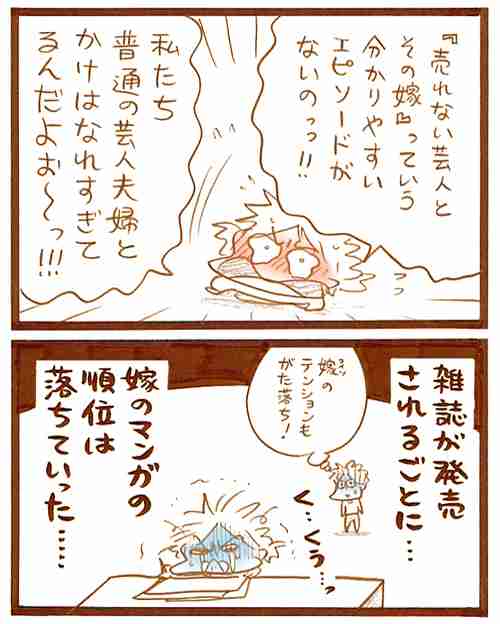 『売れない芸人と
その嫁』っていう
分かりやすい
エピソードが
ないのっっ!!
私たち
普通の芸人夫婦と
かけはなれすぎて
るんだよぉ〜っ!!!
雑誌が発売
されるごとに…
嫁の
テンションも
がた落ち!
く…くうっ…っ
嫁のマンガの
順位は
落ちていった……